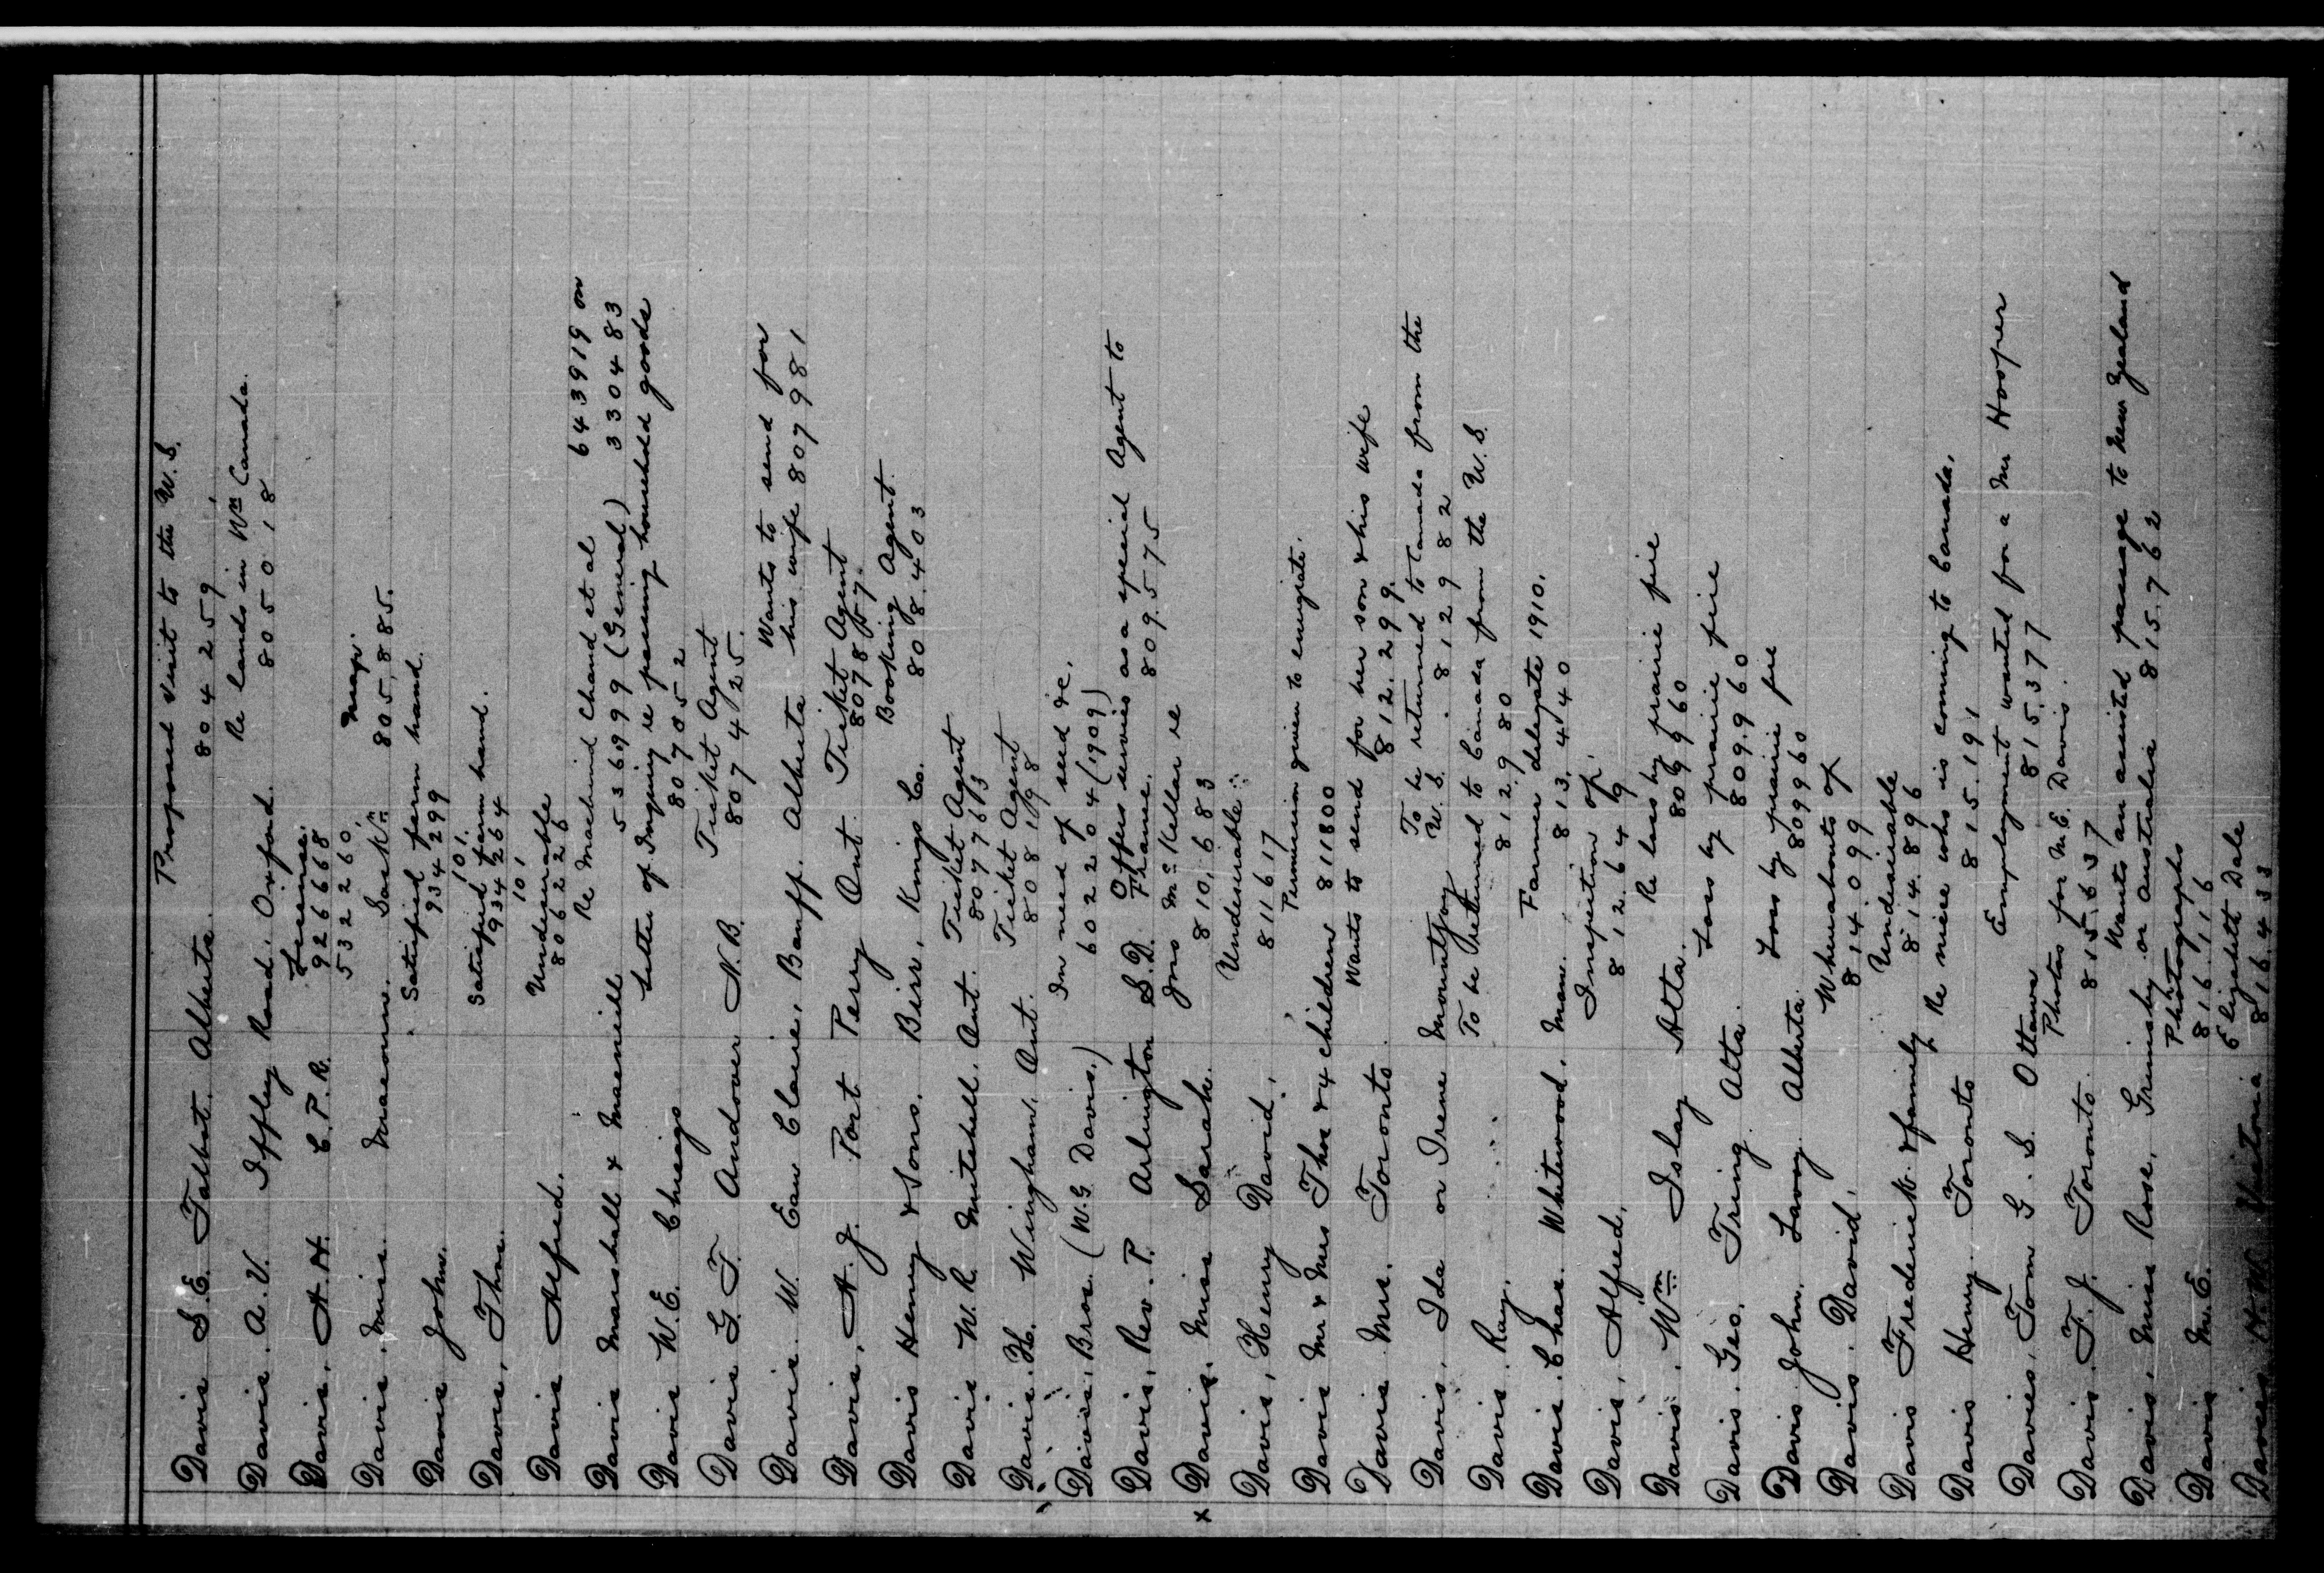 Davis S.E. Talbot. Alberta. Proposed visit to the U.S.
804259
Davis. A.V. Iffley Road. Oxford. Re lands in Wn Canada.
805018
Davis, A.H. C.P.R. License.
926668
532260
Davis. Miss. Macoun. Sask'n Map.
805,885.
Davis John. Satisfied farm hand.
934299
101.
Davis, Thos. Satisfied farm hand.
934264
101
Davis Alfred. Undesirable
806226
Davis Marshall & Macneill Re Machind Chand et al 643919 on
536999 (General) 330483
Davis W.E. Chicago Letter of Inquiry re passing household goods
807052
Davis G.T. Andover N.B. Ticket Agent
807425.
Davis. W. Eau Claire, Banff. Alberta Wants to send for
his wife 807981
Davis, A.J. Port Perry Ont Ticket Agent
Davis Henry & Sons. Birr, Kings Co. Booking Agent.
808.403
Davis W.R. Mitchell. Ont. Ticket Agent
807763
Davis. H. Wingham. Ont. Ticket Agent
808198
Davis, Bros. (W.G. Davis.) In need of seed &c.
602204 (1909)
Davis, Rev. P. Arlington S.D. Offers services as a special Agent to
France. 809.575
x Davis, Miss Sarah. Jons McKellar re
810,683
Davis, Henry David. Undesirable
811617
Davis Mr & Mrs Thos & 4 children Permission given to emigrate.
811800
Davis Mrs. Toronto Wants to send for her son & his wife
812.299.
Davis, Ida or Irene Mountjoy To be returned to Canada from the
U.S. 812982
Davis Ray. To be Returned to Canada from the U.S.
812.980
Davis. Chas. Whitewood. Man. Farmer delegate 1910.
813.440
Davis, Alfred. Inspection of.
812.649
Davis. Wm Islay Alta. Re loss by prairie fire
809960
Davis. Geo. Tring. Alta. Loss by prairie fire
809.960
Davis John. Lavoy. Alberta. Loss by prairie fire
809960
Davis. David. Whereabouts of
814099
Davis Frederick & family Undesirable
814.896
Davis Henry. Toronto Re niece who is coming to Canada.
815.191
Davies, Tom G.S. Ottawa Employment wanted for a Mr Hooper
815.377
Davis. T.J. Toronto. Photos for M.E. Davis.
815.637
Davis, Miss Rose, Grimsby Wants an assisted passage to New Zealand
or Australia 815.762
Davis M.E. Photographs
816.116
Davies, H.W. Victoria Elizabeth Dale
816.433